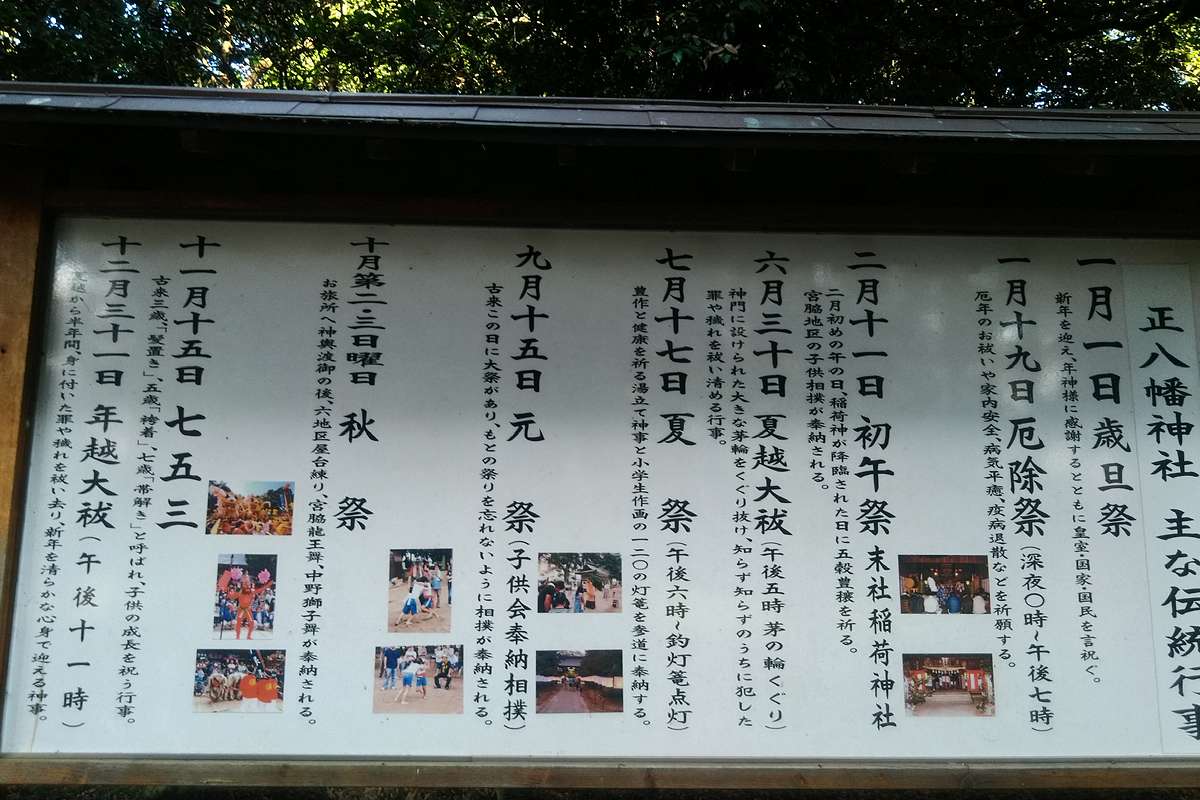 正八幡神社 主な伝統行事
一月一日 歳旦祭
新年を迎え、年神様に感謝するとともに皇室・国家・国民を言祝ぐ。
一月十九日 厄除祭(深夜〇時~午後七時)
厄年のお祓いや家内安全、病気平癒、疫病退散などを祈願する。
二月十一日 初午祭 末社稲荷神社
二月初めの午の日、稲荷神が降臨された日に五穀豊穣を祈る。
宮脇地区の子供相撲が奉納される。
六月三十日 夏越大祓(午後五時 茅の輪くぐり)
神門に設けられた大きな茅輪をくぐり抜け、知らず知らずのうちに犯した
罪や穢れを祓い清める行事。
七月十七日 夏 祭(午後六時~釣灯篭点灯)
豊作と健康を祈る湯立て神事と小学生作画の一二〇の灯篭を参道に奉納する。
九月十五日 元 祭(子供会奉納相撲)
古来この日に大祭があり、もとの祭りを忘れないように相撲が奉納される。
十月第二・三日曜日 秋 祭
お旅所へ神輿渡御の後、六地区屋台練り、宮脇龍王舞、中野獅子舞が奉納される。
十一月十五日 七五三
古来三歳、「髪置き」、五歳「袴着」、七歳「帯解き」と呼ばれ、子供の成長を祝う行事。
十二月三十一日 年越大祓(午後十一時)
夏越から半年間、身に付いた罪や穢れを祓い去り、新年を清らかな心身で迎える神事。